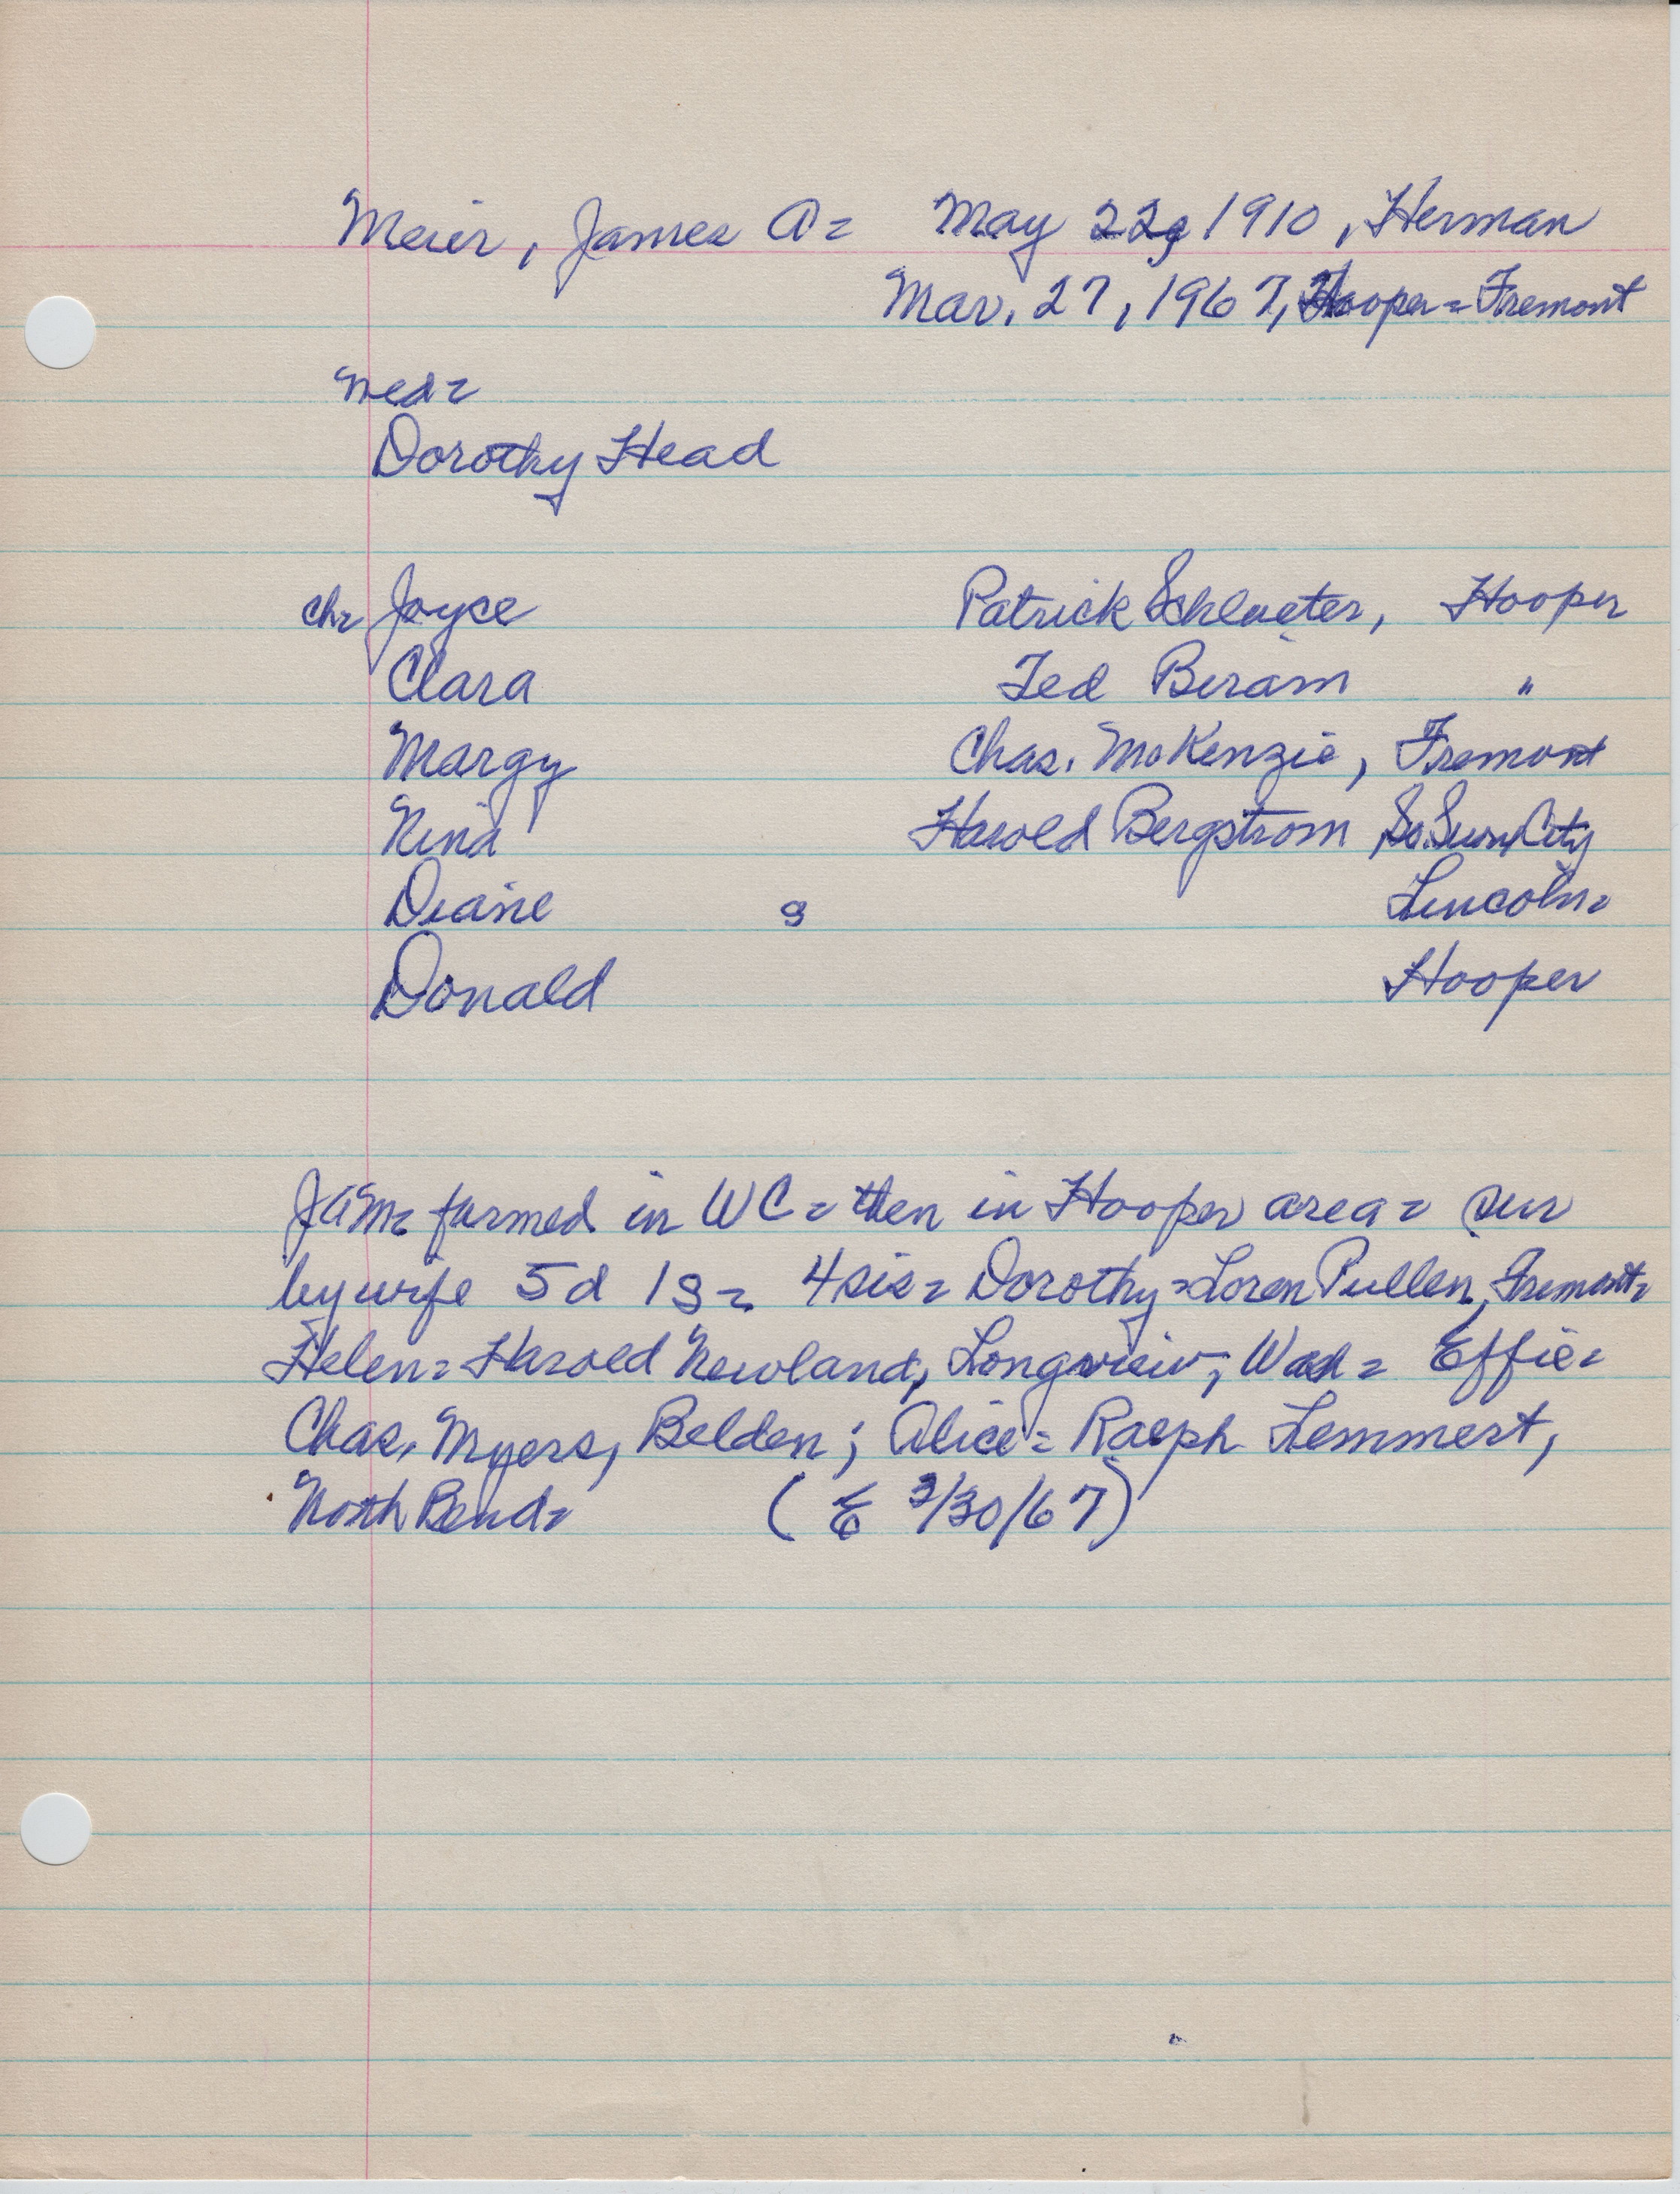 Meier, James A= May 22, 1910, Herman
Mar. 27, 1967, Hooper= Fremont
med=
Dorothy Head
ch= Joyce Patrick Schlueter, Hooper
Clara Ted Beram "
Margy Chas. McKenzie, Fremont
Nina Harold Bergstrom So. Sioux City
Diane s Lincoln=
Donald Hooper
JAM= farmed in WC= then in Hooper area= sur
by wife 5d 1s= 4 sis= Dorothy= Loren Pullen, Fremont=
Helen= Harold Newland, Longview, Wash= Effie=
Chas. Myers, Belden; Alice= Ralph Lemmert,
North Bend= (E 3/30/67)